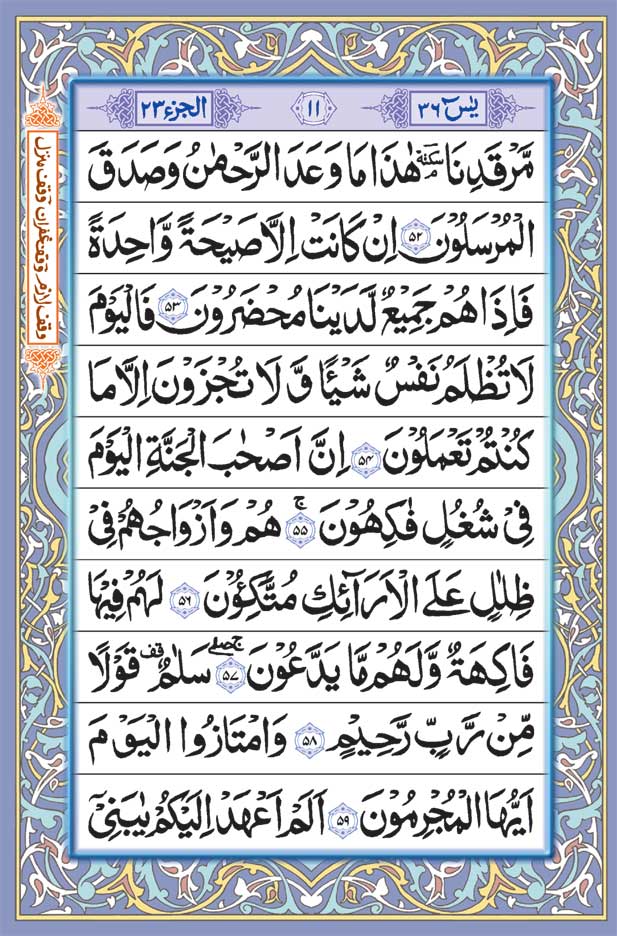 يٰسٓ ٣٦
١١
الجزء ٢٣
مَّرْقَدِنَا ۜ سكتة هٰذَا مَا وَعَدَ الرَّحْمٰنُ وَصَدَقَ
الْمُرْسَلُوْنَ ﴿٥٢﴾ اِنْ كَانَتْ اِلَّا صَيْحَةً وَّاحِدَةً
فَاِذَا هُمْ جَمِيْعٌ لَّدَيْنَا مُحْضَرُوْنَ ﴿٥٣﴾ فَالْيَوْمَ
لَا تُظْلَمُ نَفْسٌ شَيْـًٔا وَّ لَا تُجْزَوْنَ اِلَّا مَا
كُنْتُمْ تَعْمَلُوْنَ ﴿٥٤﴾ اِنَّ اَصْحٰبَ الْجَنَّةِ الْيَوْمَ
فِيْ شُغُلٍ فٰكِهُوْنَ ۚ ﴿٥٥﴾ هُمْ وَاَزْوَاجُهُمْ فِيْ
ظِلٰلٍ عَلَى الْاَرَآئِكِ مُتَّكِـُٔوْنَ ﴿٥٦﴾ لَهُمْ فِيْهَا
فَاكِهَةٌ وَّلَهُمْ مَّا يَدَّعُوْنَ ۚۖ ﴿٥٧﴾ سَلٰمٌ قف قَوْلًا
مِّنْ رَّبٍّ رَّحِيْمٍ ﴿٥٨﴾ وَامْتَازُوا الْيَوْمَ
اَيُّهَا الْمُجْرِمُوْنَ ﴿٥٩﴾ اَلَمْ اَعْهَدْ اِلَيْكُمْ يٰبَنِيْٓ
وقف لازم وقف غفران وقف منزل